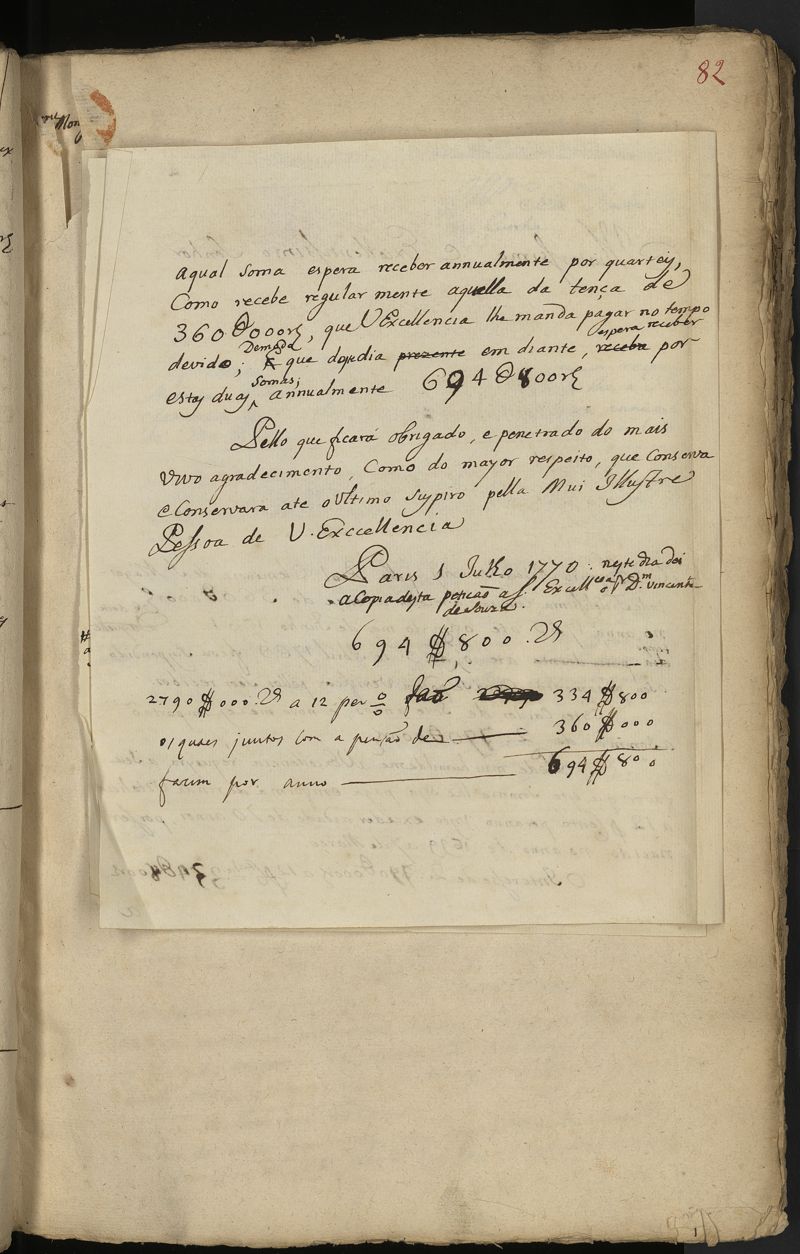 82
Aqual soma espera receber annualmente por quarteis,
Como recebe regularmente aquella da tença de
360000rs, que VExcellencia lhe manda pagar no tempo
espera receber
devido; que dojedia prezente em diante, receba por
Somas;
estas duas annualmente 694800rs
Pello que ficará obrigado, e penetrado do mais
vivo agradecimento, Como do mayor respeito, que Conserva
e Conservara ate o ultimo suspiro pella Mui Illustre
Pessoa de V. Exccellencia
Paris 1 Julho 1770. neste dia dei
a Copia desta petição a S. Excell.cia o S.r D.m Vincente
de Souza.
694$800. Rs
2790$000. Rs a 12 per % faõ 334$800
os quaes juntos com a pensaõ de 360$000
farim por anno 694$800